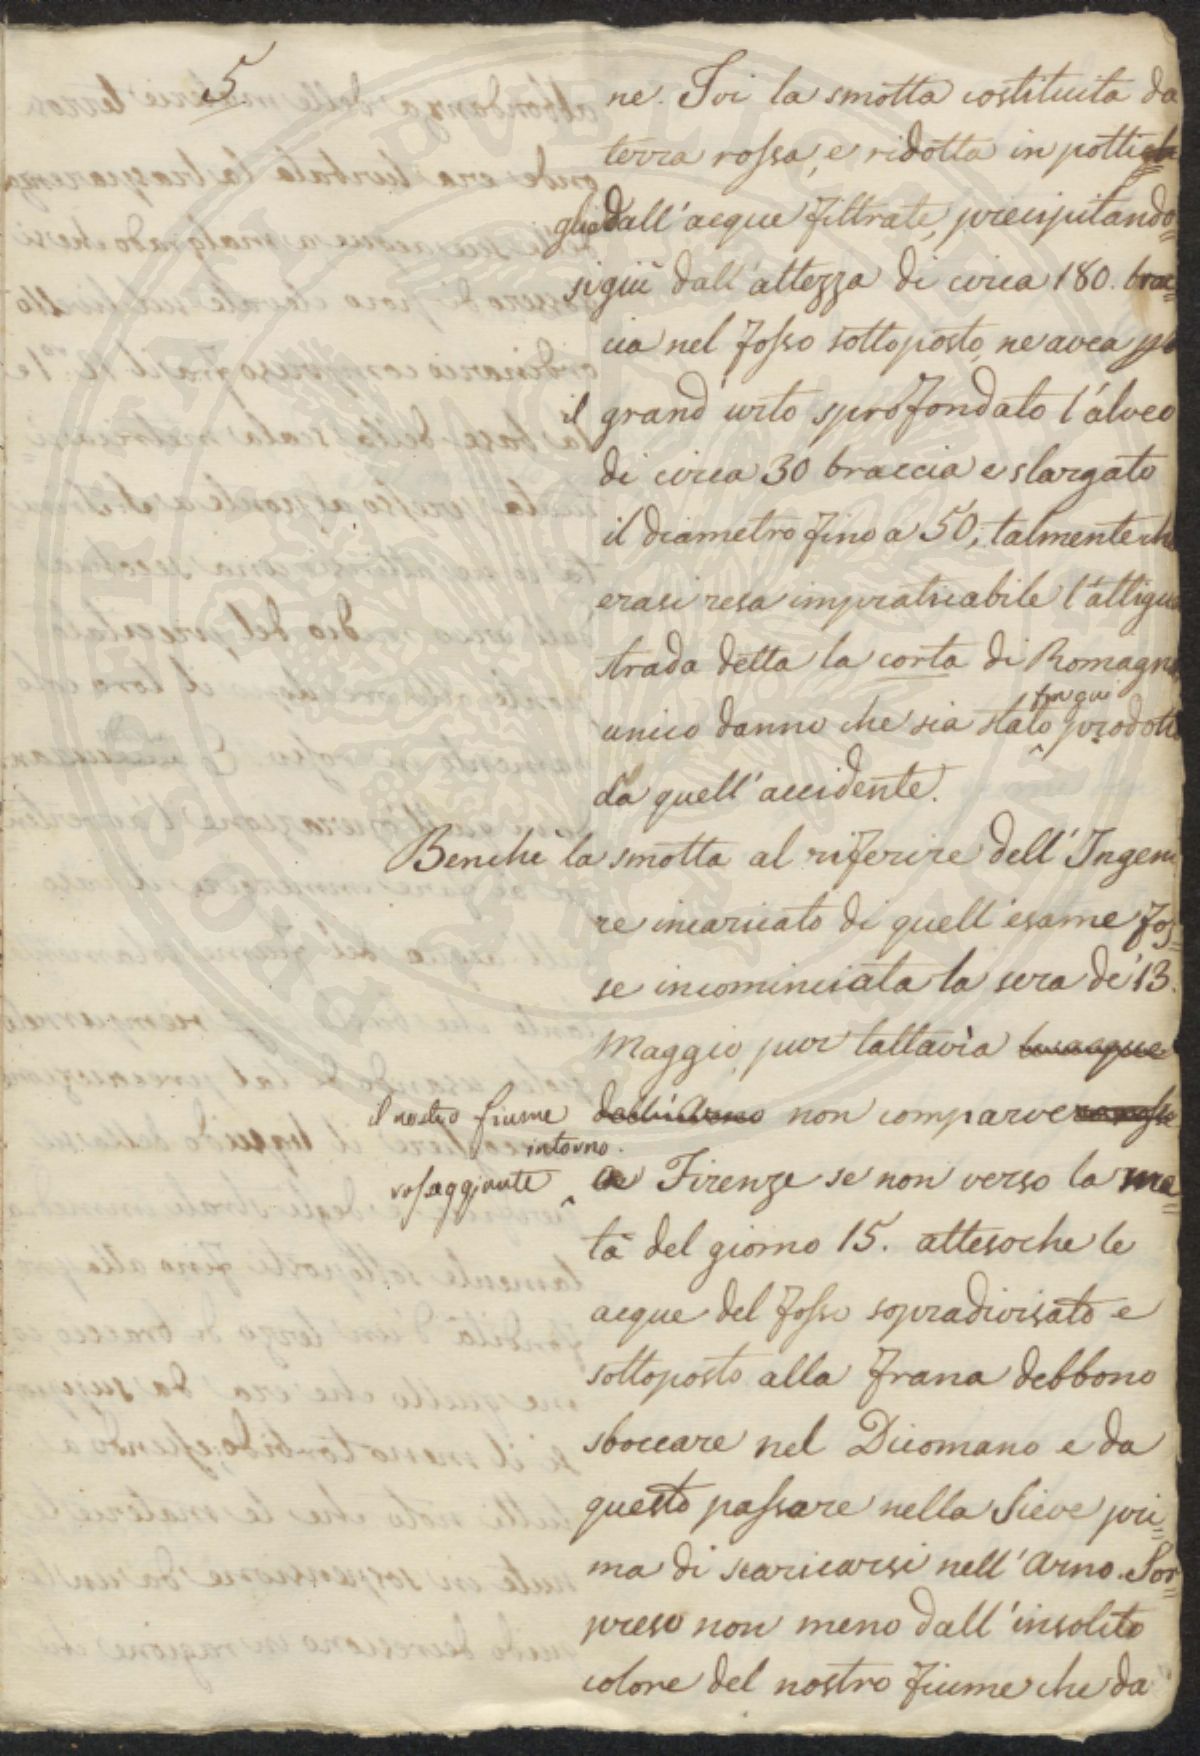 5.
ne. Ivi la smotta costituita da
terra rossa, e ridotta in potti
glia dall'acque filtrate, precipitando=
si giù dall'altezza di circa 180. brac=
cia nel fosso sottoposto, ne avea
il grand'urto sprofondato l'alveo
di circa 30 braccia e slargato
il diametro fino a 50, talmente che
erasi resa impraticabile l'attigua
strada detta la corta di Romagna,
unico danno che sia stato fin qui prodotto
da quell'accidente.
Benchè la smotta al riferire dell'Ingegne
re incaricato di quell'esame fos=
se incominciata la sera de' 13.
Maggio, pur tuttavia
il nostro fiume non comparve
rosseggiante intorno a Firenze se non verso la me=
tà del giorno 15. attesoche le
acque del fosso sopradivisato e
sottoposto alla frana debbono
sboccare nel Dicomano e da
questo passare nella Sieve pri=
ma di scaricarsi nell'Arno. Sor=
preso non meno dall'insolito
colore del nostro fiume che da